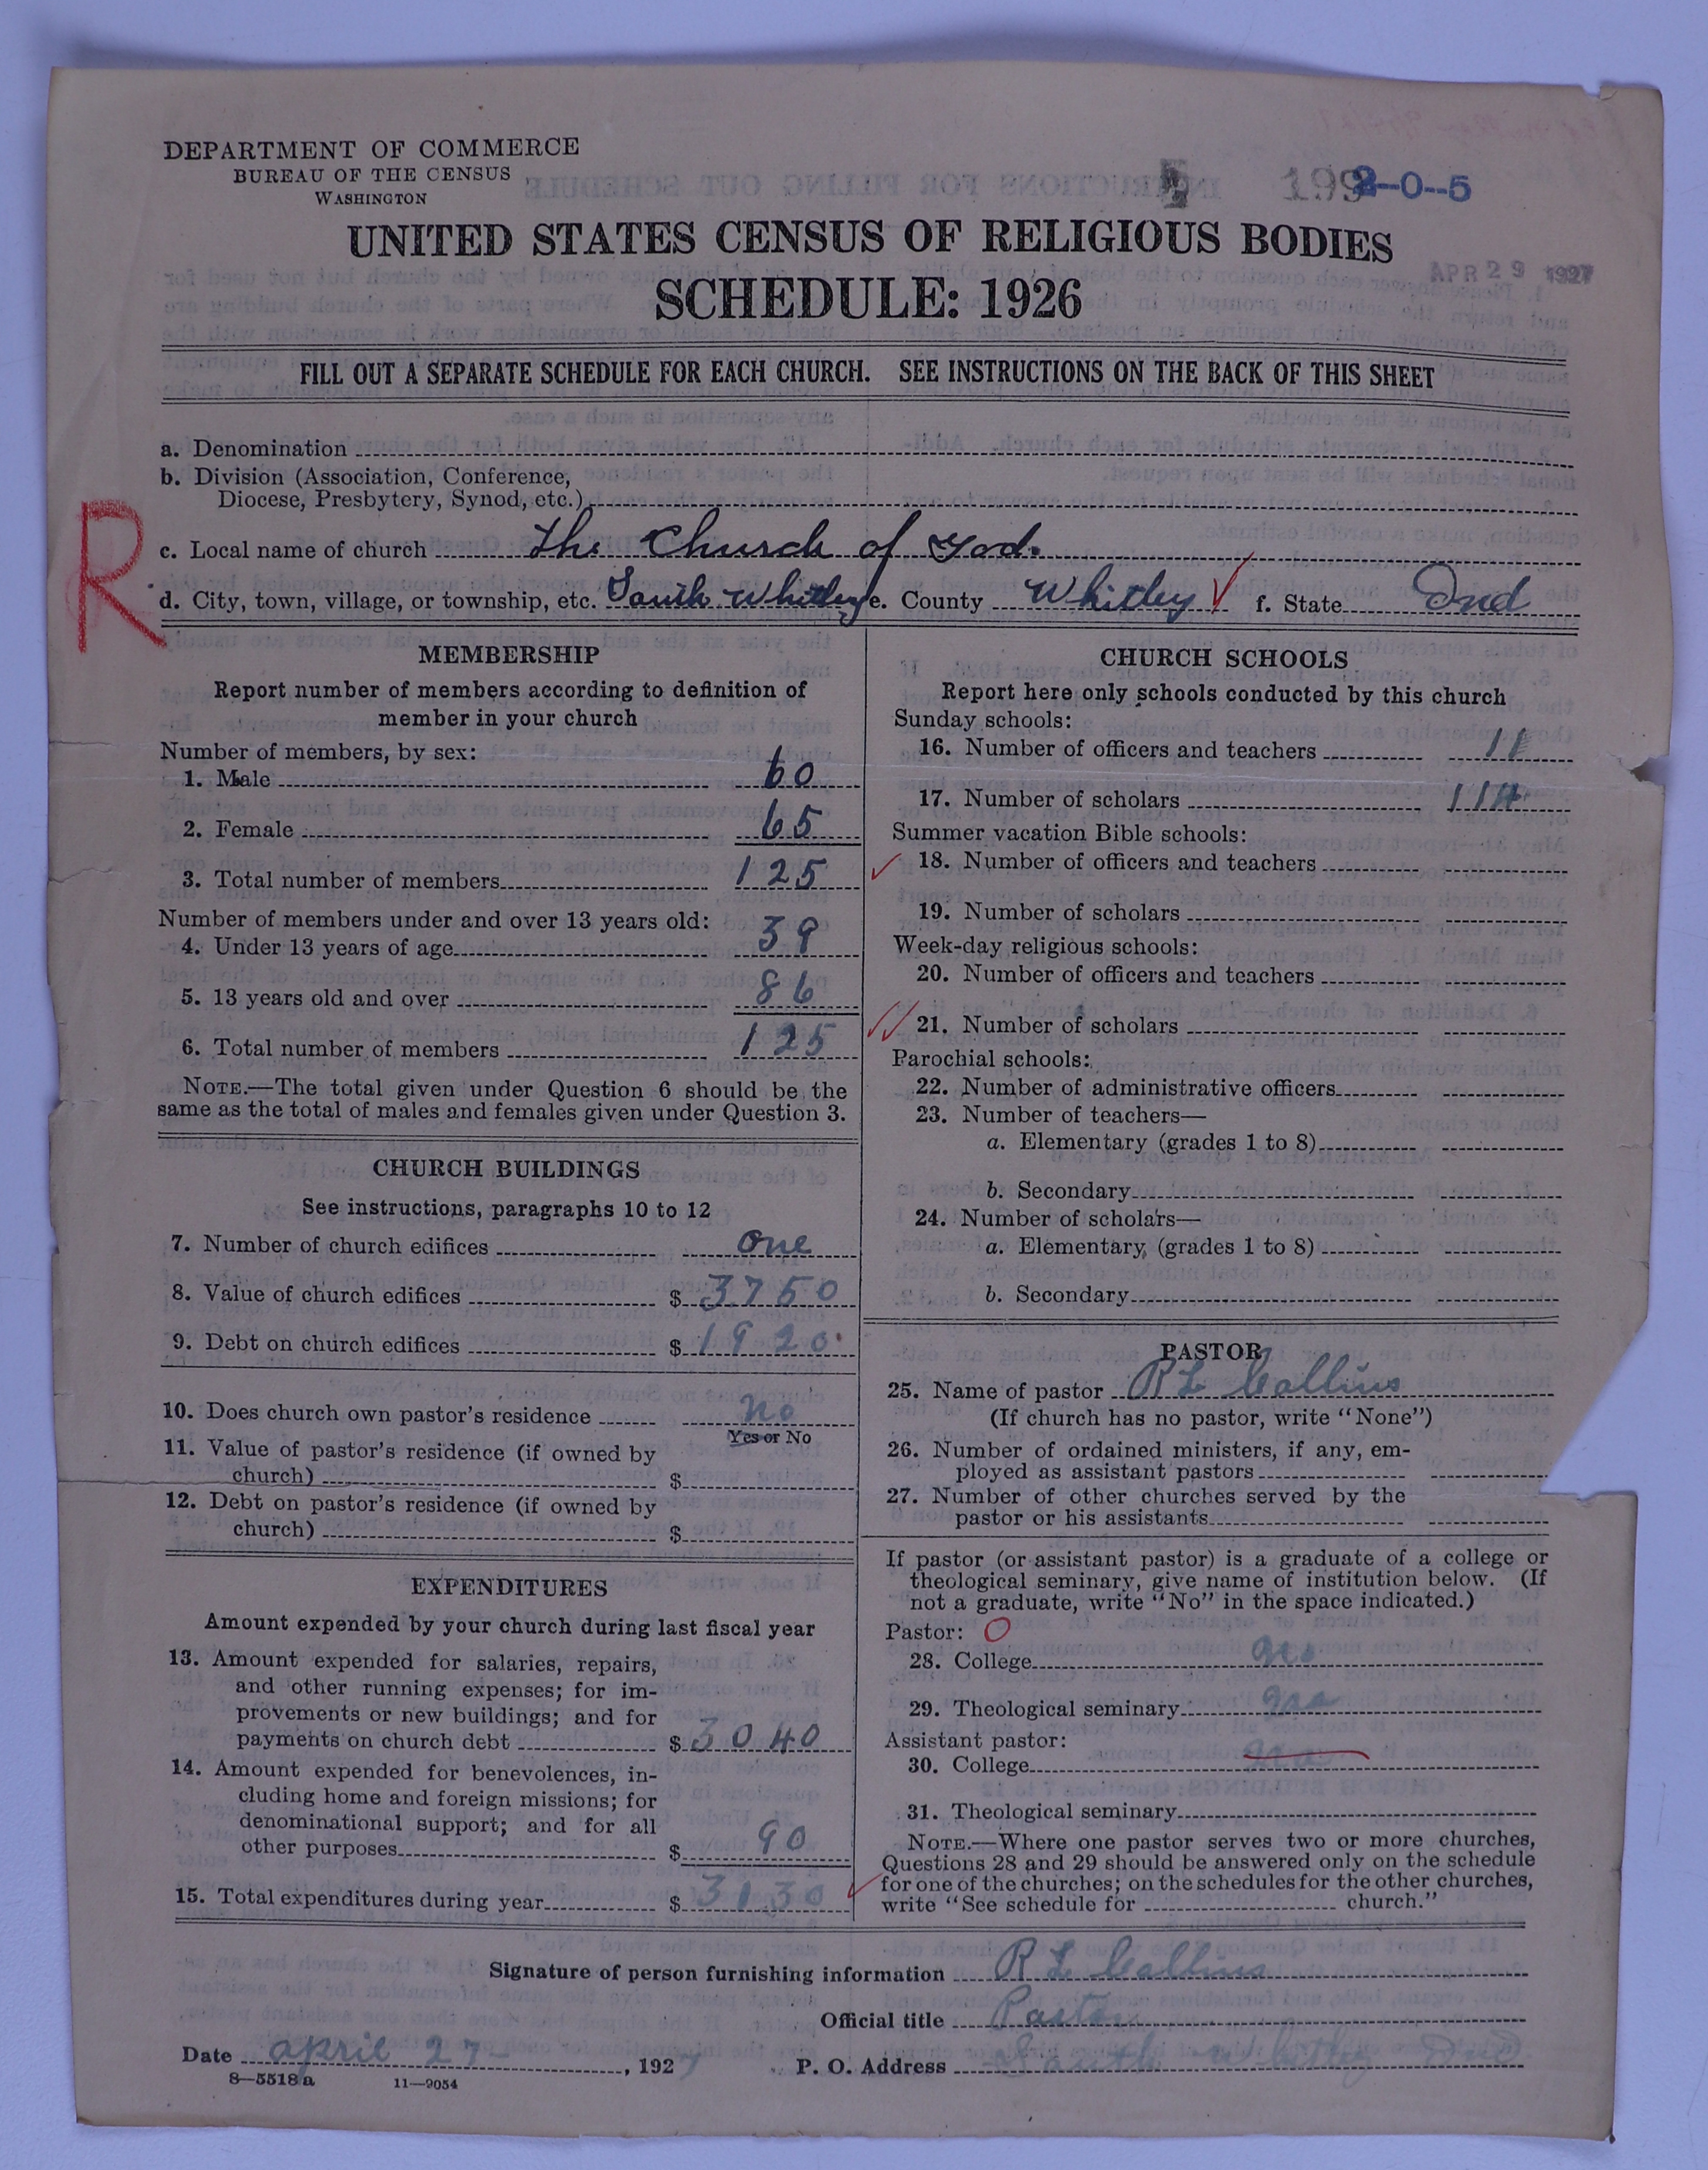 DEPARTMENT OF COMMERCE
BUREAU OF THE CENSUS
WASHINGTON
2-0-5
UNITED STATES CENSUS OF RELIGIOUS BODIES
APR 29 1927
SCHEDULE: 1926
FILL OUT A SEPARATE SCHEDULE FOR EACH CHURCH. SEE INSTRUCTIONS ON THE BACK OF THIS SHEET
a. Denomination
b. Division (Association, Conference,
Diocese, Presbytery, Synod, etc.)
R
c. Local name of church The Church of God.
d. City, town, village, or township, etc. South Whitley e. County Whitley f. State Ind
MEMBERSHIP
Report number of members according to definition of
member in your church
Number of members, by sex:
1. Male 60
2. Female 65
3. Total number of members 125
Number of members under and over 13 years old:
4. Under 13 years of age 39
5. 13 years old and over 86
6. Total number of members 125
NOTE.—The total given under Question 6 should be the
same as the total of males and females given under Question 3.
CHURCH BUILDINGS
See instructions, paragraphs 10 to 12
7. Number of church edifices one
8. Value of church edifices $ 3750
9. Debt on church edifices $ 1920
10. Does church own pastor's residence no
Yes or No
11. Value of pastor's residence (if owned by
church) $
12. Debt on pastor's residence (if owned by
church) $
EXPENDITURES
Amount expended by your church during last fiscal year
13. Amount expended for salaries, repairs,
and other running expenses; for im-
provements or new buildings; and for
payments on church debt $ 3040
14. Amount expended for benevolences, in-
cluding home and foreign missions; for
denominational support; and for all
other purposes $ 90
15. Total expenditures during year $ 3130
CHURCH SCHOOLS
Report here only schools conducted by this church
Sunday schools:
16. Number of officers and teachers 11
17. Number of scholars 114
Summer vacation Bible schools:
18. Number of officers and teachers
19. Number of scholars
Week-day religious schools:
20. Number of officers and teachers
21. Number of scholars
Parochial schools:
22. Number of administrative officers
23. Number of teachers—
a. Elementary (grades 1 to 8)
b. Secondary
24. Number of scholars—
a. Elementary (grades 1 to 8)
b. Secondary
PASTOR
25. Name of pastor R L Collins
(If church has no pastor, write "None")
26. Number of ordained ministers, if any, em-
ployed as assistant pastors
27. Number of other churches served by the
pastor or his assistants
If pastor (or assistant pastor) is a graduate of a college or
theological seminary, give name of institution below. (If
not a graduate, write "No" in the space indicated.)
Pastor: O
28. College no
29. Theological seminary no
Assistant pastor:
30. College no
31. Theological seminary
NOTE.—Where one pastor serves two or more churches,
Questions 28 and 29 should be answered only on the schedule
for one of the churches; on the schedules for the other churches,
write "See schedule for church."
Signature of person furnishing information R L Collins
Official title Pastor
Date april 27 , 1927 P. O. Address South Whitley Ind
8—5518 a 11—9054